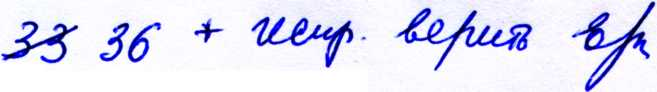 33 36 * испр. верить